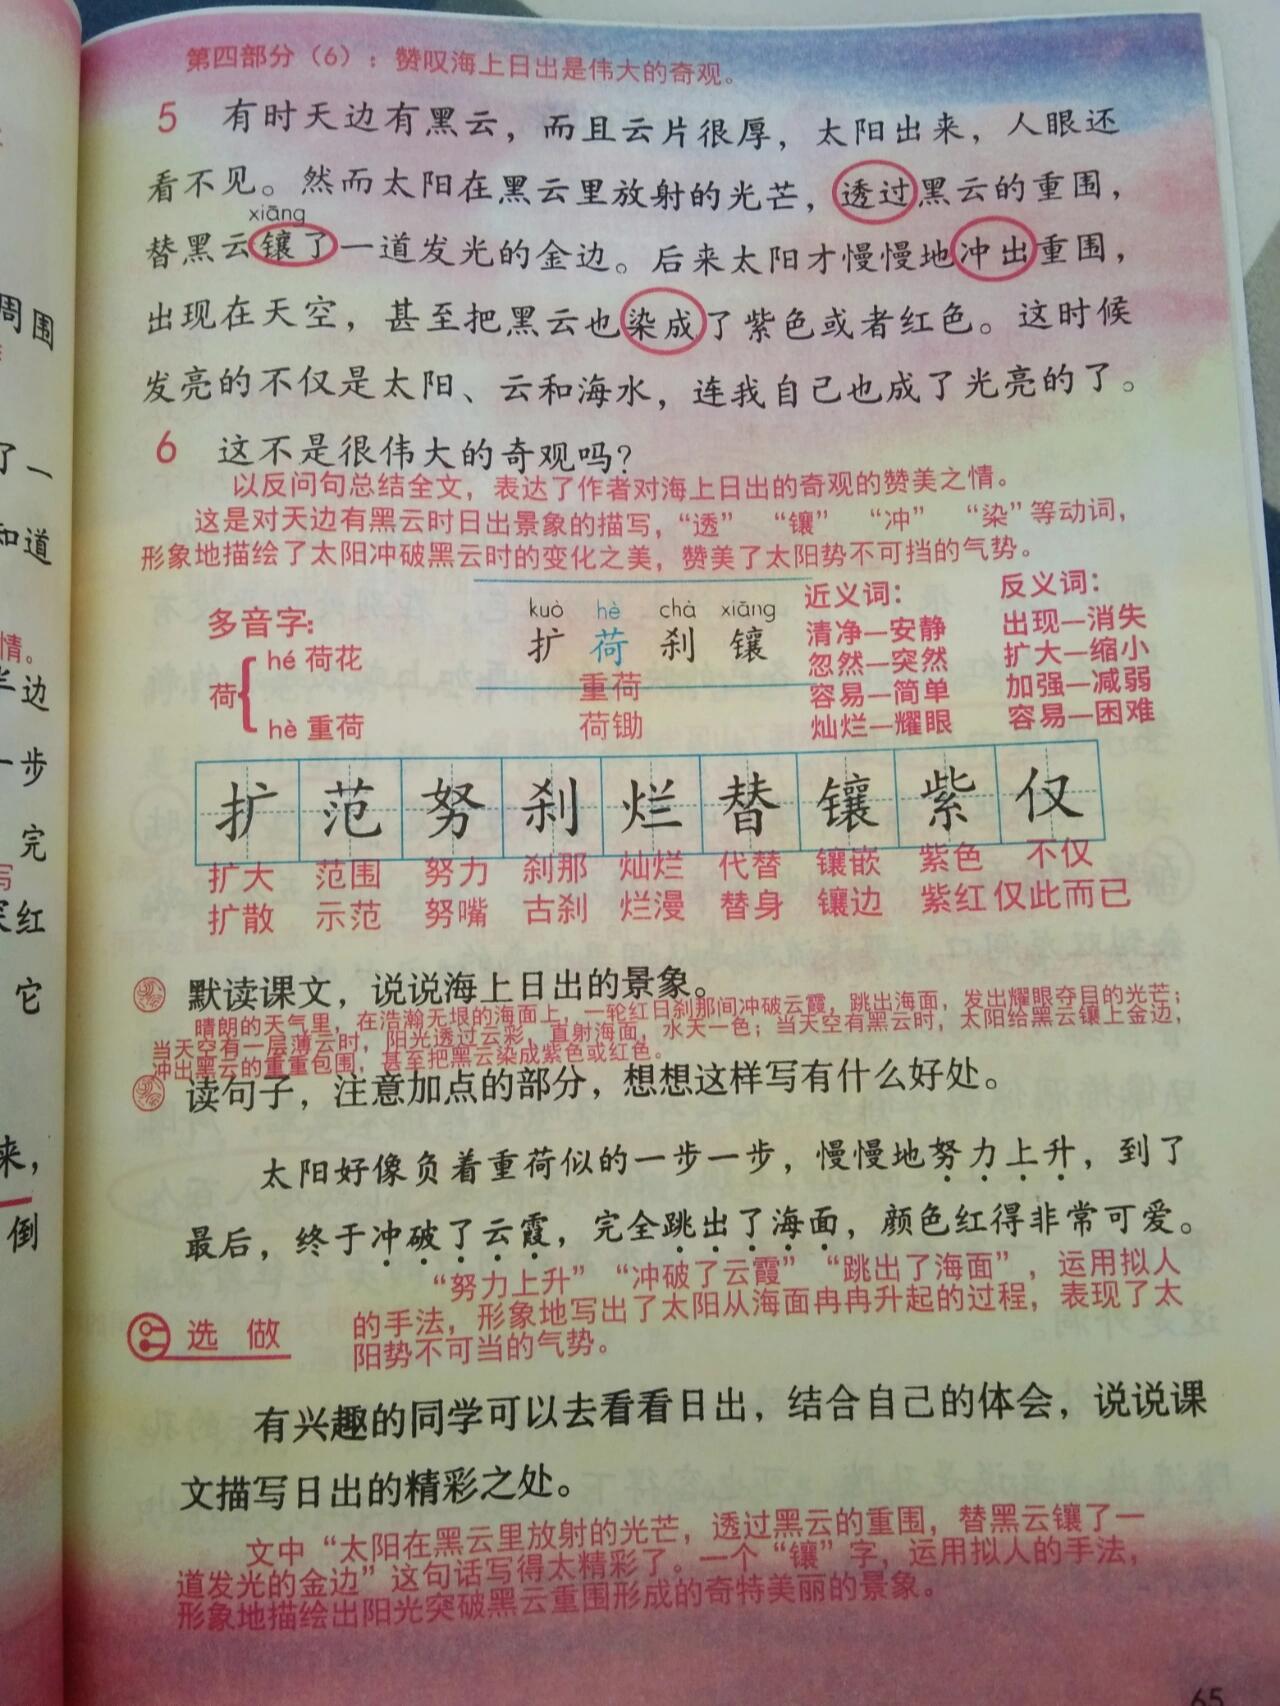 第四部分（6）：赞叹海上日出是伟大的奇观。
5 有时天边有黑云，而且云片很厚，太阳出来，人眼还
看不见。然而太阳在黑云里放射的光芒，透过黑云的重围，
xiāng
替黑云镶了一道发光的金边。后来太阳才慢慢地冲出重围，
出现在天空，甚至把黑云也染成了紫色或者红色。这时候
发亮的不仅是太阳、云和海水，连我自己也成了光亮的了。
6 这不是很伟大的奇观吗？
以反问句总结全文，表达了作者对海上日出的奇观的赞美之情。
这是对天边有黑云时日出景象的描写，“透” “镶” “冲” “染”等动词，
形象地描绘了太阳冲破黑云时的变化之美，赞美了太阳势不可挡的气势。
多音字：
荷
hé 荷花
hè 重荷
kuò hè chà xiāng
扩 荷 刹 镶
重荷
荷锄
近义词：
清净—安静
忽然—突然
容易—简单
灿烂—耀眼
反义词：
出现—消失
扩大—缩小
加强—减弱
容易—困难
扩 范 努 刹 烂 替 镶 紫 仅
扩大 范围 努力 刹那 灿烂 代替 镶嵌 紫色 不仅
扩散 示范 努嘴 古刹 烂漫 替身 镶边 紫红 仅此而已
默读课文，说说海上日出的景象。
晴朗的天气里，在浩瀚无垠的海面上，一轮红日刹那间冲破云霞，跳出海面，发出耀眼夺目的光芒；
当天空有一层薄云时，阳光透过云彩，直射海面，水天一色；当天空有黑云时，太阳给黑云镶上金边，
冲出黑云的重重包围，甚至把黑云染成紫色或红色。
读句子，注意加点的部分，想想这样写有什么好处。
太阳好像负着重荷似的一步一步，慢慢地努力上升，到了
最后，终于冲破了云霞，完全跳出了海面，颜色红得非常可爱。
“努力上升” “冲破了云霞” “跳出了海面”，运用拟人
的手法，形象地写出了太阳从海面冉冉升起的过程，表现了太
阳势不可当的气势。
选做
有兴趣的同学可以去看看日出，结合自己的体会，说说课
文描写日出的精彩之处。
文中“太阳在黑云里放射的光芒，透过黑云的重围，替黑云镶了一
道发光的金边”这句话写得太精彩了。一个“镶”字，运用拟人的手法，
形象地描绘出阳光突破黑云重围形成的奇特美丽的景象。
65
周围
了一
和道
情。
半边
一步
完
写
红
它
来，
倒